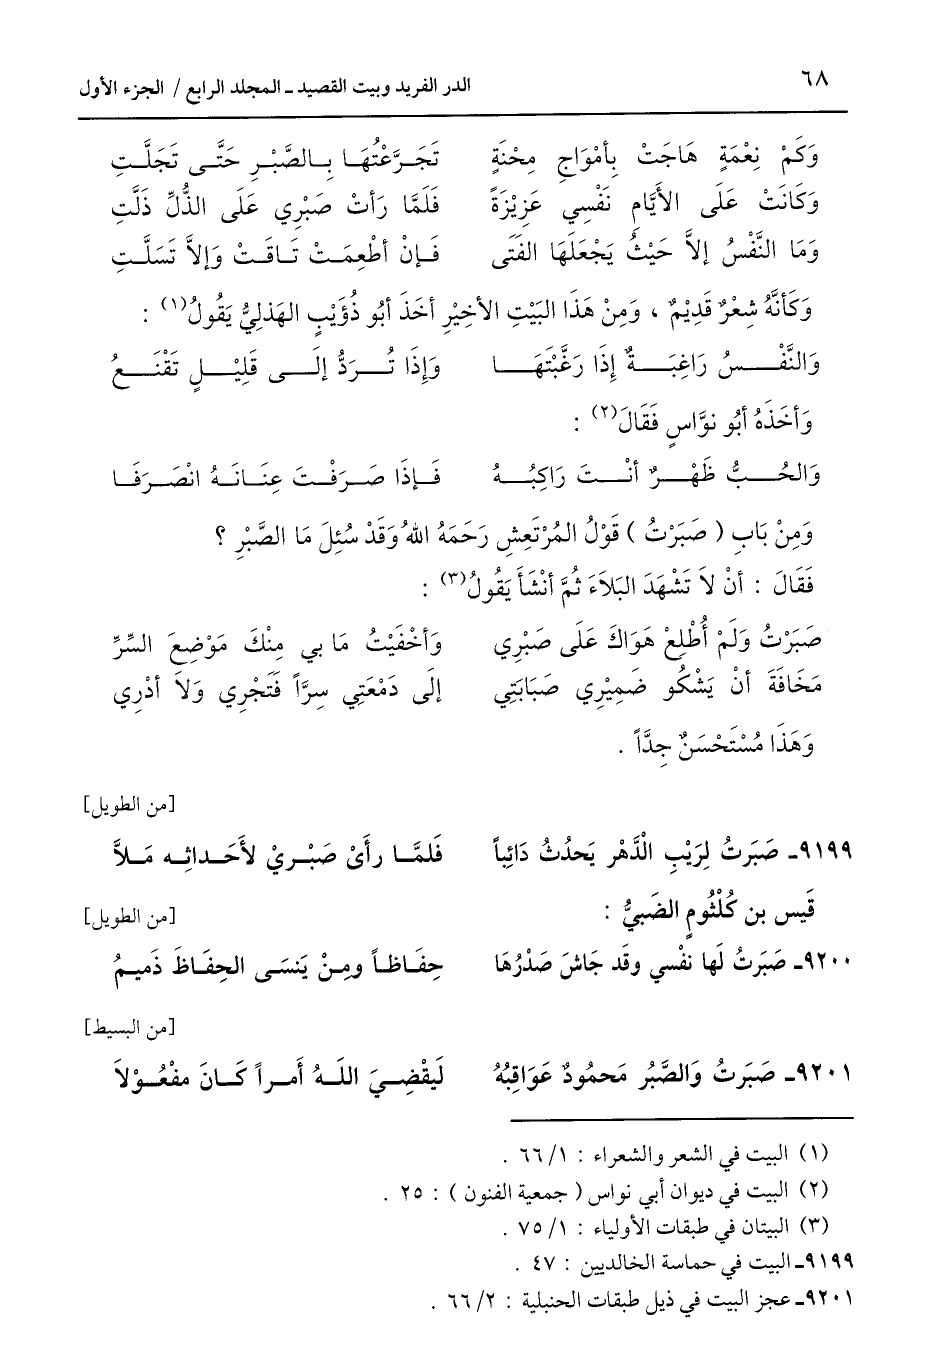 ٦٨ الدر الفريد وبيت القصيد ـ المجلد الرابع / الجزء الأول
وَكَمْ نِعْمَةٍ هَاجَتْ بِأَمْوَاجِ مِحْنَةٍ تَجَرَّعْتُهَا بِالصَّبْرِ حَتَّى تَجَلَّتِ
وَكَانَتْ عَلَى الأَيَّامِ نَفْسِي عَزِيْزَةً فَلَمَّا رَأتْ صَبْرِي عَلَى الذُّلِّ ذَلَّتِ
وَمَا النَّفْسُ إلاَّ حَيْثُ يَجْعَلَهَا الفَتَى فَإنْ أُطْعِمَتْ تَاقَتْ وَإلاَّ تَسَلَّتِ
وَكَأنَّهُ شِعْرٌ قَدِيْمٌ ، وَمِنْ هَذَا البَيْتِ الأخِيْرِ أخَذَ أبُو ذُؤَيْبٍ الهَذَلِيُّ يَقُولُ(١) :
وَالنَّفْسُ رَاغِبَةٌ إذَا رَغَّبْتَهَا وَإذَا تُرَدُّ إلَى قَلِيْلٍ تَقْنَعُ
وَأخَذَهُ أبُو نوَّاسٍ فَقَالَ(٢) :
وَالحُبُّ ظَهْرٌ أنْتَ رَاكِبُهُ فَإذَا صَرَفْتَ عِنَانَهُ انْصَرَفَا
وَمِنْ بَابِ ( صَبَرْتُ ) قَوْلُ المُرْتَعِشِ رَحَمَهُ اللهُ وَقَدْ سُئِلَ مَا الصَّبْرِ ؟
فَقَالَ : أنْ لاَ تَشْهَدَ البَلاَءَ ثُمَّ أنْشَأ يَقُولُ(٣) :
صَبَرْتُ وَلَمْ أُطْلِعْ هَوَاكَ عَلَى صَبْرِي وَأخْفَيْتُ مَا بي مِنْكَ مَوْضِعَ السِّرِّ
مَخَافَةَ أنْ يَشْكُو ضَمِيْرِي صَبَابَتِي إلى دَمْعَتِي سِرَّاً فَتَجْرِي وَلاَ أدْرِي
وَهَذَا مُسْتَحْسَنٌ جِدَّاً .
[من الطويل]
٩١٩٩ـ صَبَرتُ لِرَيْبِ الْدَّهْرِ يَحدُثُ دَائِباً فَلمَّا رأَىْ صَبْرِيْ لأَحَداثِه مَلاَّ
قَيس بن كُلْثُومٍ الضَبيُّ : [من الطويل]
٩٢٠٠ـ صَبَرتُ لها نفْسي وقد جَاشَ صَدْرُهَا حِفَاظاً ومِنْ يَنسَى الحِفَاظَ ذَميمُ
[من البسيط]
٩٢٠١ـ صَبَرتُ وَالصَّبُر مَحمُودٌ عَوَاقِبُهُ لَيقْضِيَ اللهُ أَمراً كَانَ مفْعُوْلاَ
(١) البيت في الشعر والشعراء : ١/ ٦٦ .
(٢) البيت في ديوان أبي نواس ( جمعية الفنون ) : ٢٥ .
(٣) البيتان في طبقات الأولياء : ١/ ٧٥ .
٩١٩٩ـ البيت في حماسة الخالديين : ٤٧ .
٩٢٠١ـ عجز البيت في ذيل طبقات الحنبلية : ٢/ ٦٦ .